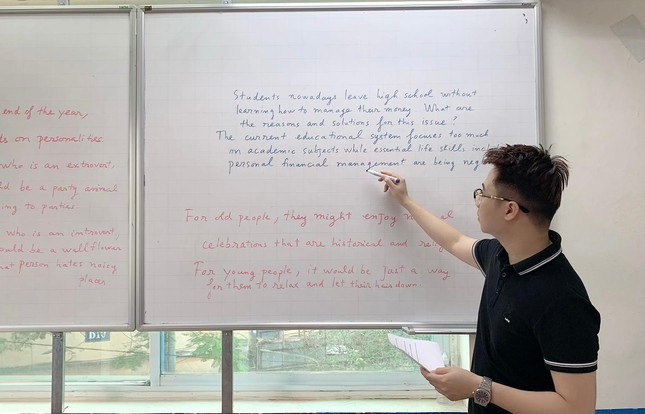 end of the year,
on personalities.
who is an extrovert.
be a party animal
ing to parties.
who is an introvert,
ould be a wallflower
at person hates noisy
places
Students nowadays leave high school without
learning how to manage their money. What are
the reasons and solutions for this issue?
The current educational system focuses too much
on academic subjects while essential life skills incl
personal financial management are being neg
For old people, they might enjoy
celebrations that are historical and
For young people, it would be just a way
for them to relax and let their hair down.
D10